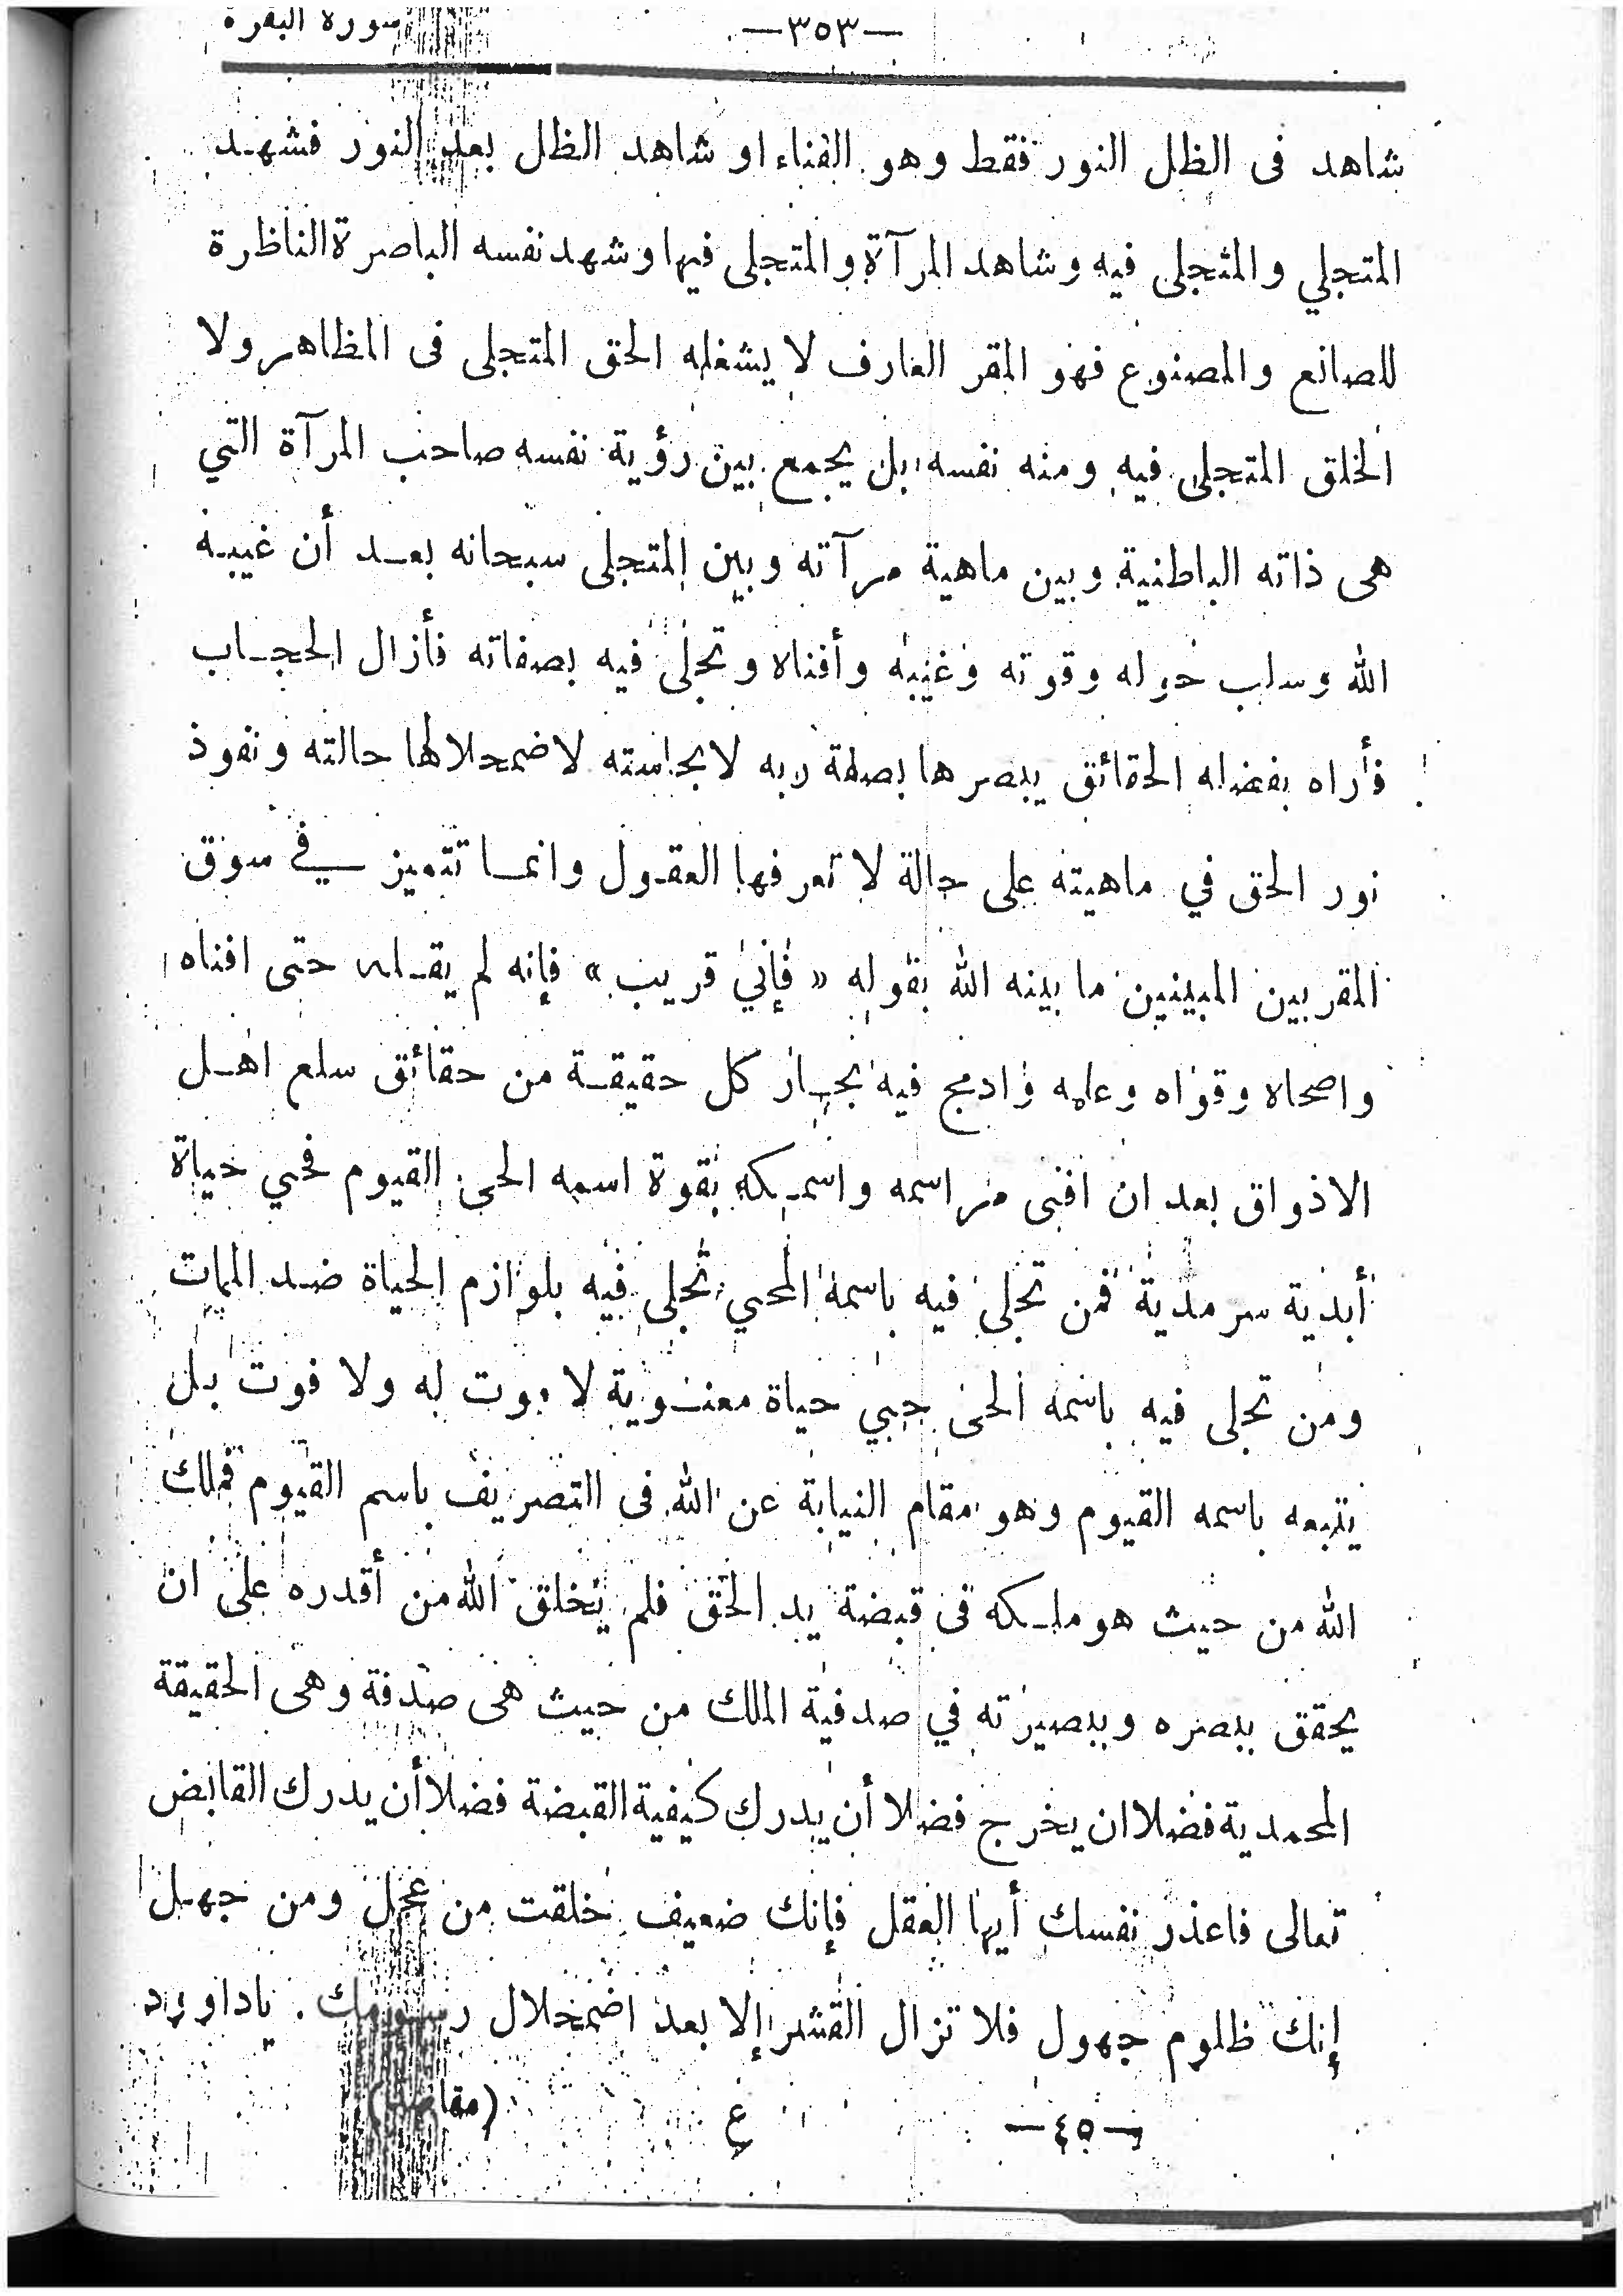 سورة البقرة —٣٥٣—
شاهد فى الظل النور فقط وهو الفناء او شاهد الظل بعد النور فشهد
المتجلي والمتجلى فيه وشاهد المرآة والمتجلى فيها وشهد نفسه الباصرة الناظرة
للصانع والمصنوع فهو المقر العارف لا يشغله الحق المتجلى فى المظاهر ولا
الخلق المتجلى فيه ومنه نفسه بل يجمع بين رؤية نفسه صاحب المرآة التي
هى ذاته الباطنية وبين ماهية مرآته وبين المتجلى سبحانه بعد أن غيبه
الله وسلب حوله وقوته وغيبه وأفناه وتجلى فيه بصفاته فأزال الحجاب
فأراه بفضله الحقائق يبصرها بصفة ربه لا بحاسته لاضمحلالها حالته ونفوذ
نور الحق في ماهيته على حالة لا تعرفها العقول وانما تتميز في سوق
المقربين المبينين ما بينه الله بقوله « فإني قريب » فإنه لم يقله حتى افناه
واصحاه وقواه وعلمه وادمج فيه بحار كل حقيقة من حقائق سلع اهل
الاذواق بعد ان افنى مراسمه واسمكه بقوة اسمه الحى القيوم فحي حياة
أبدية سرمدية فمن تجلى فيه باسمه المحي تجلى فيه بلوازم الحياة ضد الممات
ومن تجلى فيه باسمه الحى حيي حياة معنوية لا موت له ولا فوت بل
يتبعه باسمه القيوم وهو مقام النيابة عن الله فى التصريف باسم القيوم فملك
الله من حيث هو ملكه فى قبضة يد الحق فلم يخلق الله من أقدره على ان
يحقق ببصره وببصيرته في صدفية الملك من حيث هى صدفة وهى الحقيقة
المحمدية فضلا ان يخرج فضلا أن يدرك كيفية القبضة فضلا أن يدرك القابض
تعالى فاعذر نفسك أيها العقل فإنك ضعيف خلقت من عجل ومن جهل
إنك ظلوم جهول فلا تزال القشر إلا بعد اضمحلال رسومك . ياداوود
—٤٥— ع